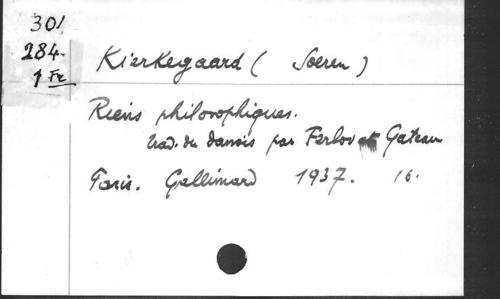 301
284.
1 Fr
Kierkegaard ( Soeren )
Riens philosophiques.
trad. du danois par Ferlov et Gateau
Paris. Gallimard 1937. 16.